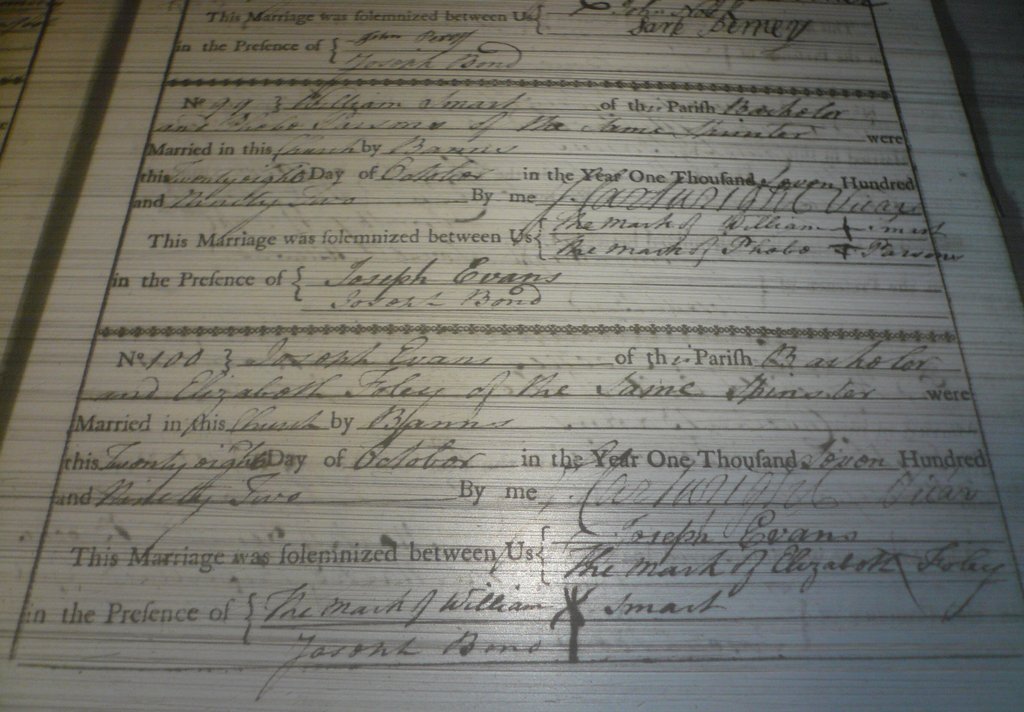 This Marriage was solemnized between Us { John
Sark Berney
in the Presence of { John Perry
Joseph Bond
No 99 } William Smart of this Parish Bachelor
and Phobe Parsons of the Same Spinster were
Married in this Church by Banns
this Twenty eight Day of October in the Year One Thousand Seven Hundred
and Ninety Two By me J. Cartwright Vicar
This Marriage was solemnized between Us { The mark of William + Smart
The mark of Phobe + Parsons
in the Presence of { Joseph Evans
Joseph Bond
No 100 } Joseph Evans of this Parish Bachelor
and Elizabeth Foley of the Same Spinster were
Married in this Church by Banns
this Twenty eight Day of October in the Year One Thousand Seven Hundred
and Ninety Two By me J. Cartwright Vicar
This Marriage was solemnized between Us { Joseph Evans
The mark of Elizabeth Foley
in the Presence of { The mark of William X Smart
Joseph Bond